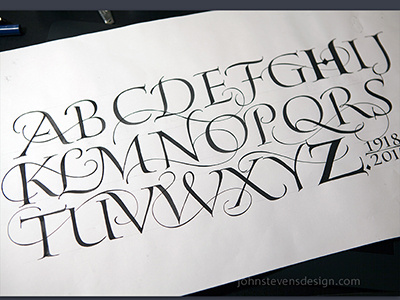 ABCDEFGHIJ
KLMNOPQRS
TUVWXYZ.
1918
201
johnstevensdesign.com